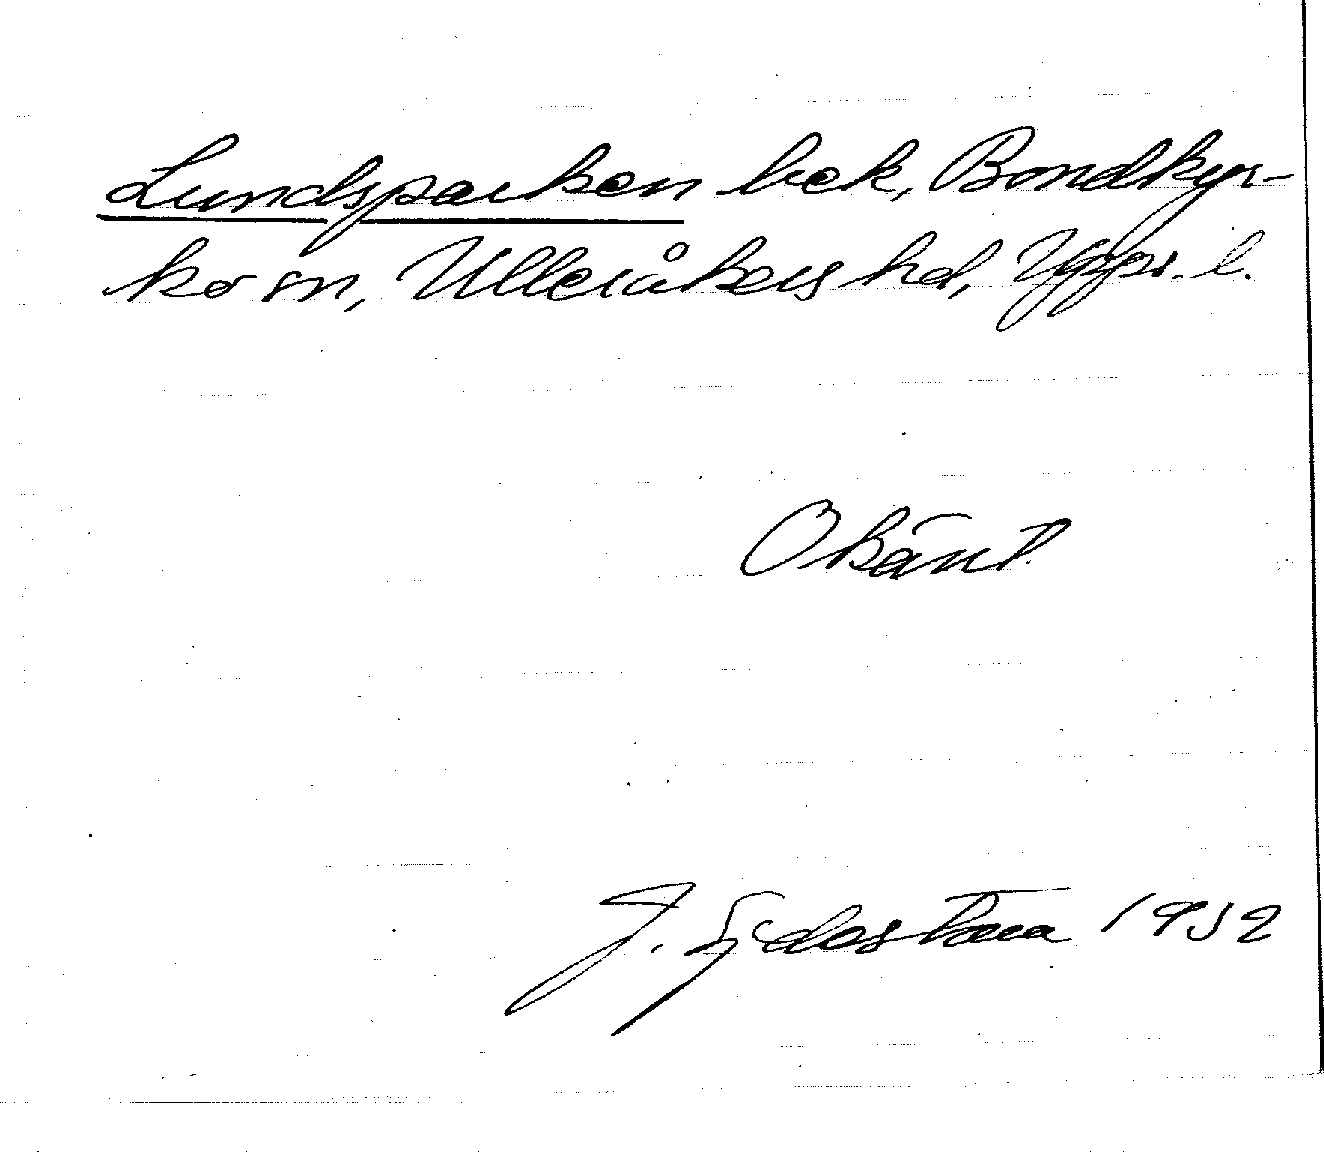 Lundsparken bek, Bondkyr-
ko sn, Ulleråkers hd, Upps. l.
Okänt
J. 1932